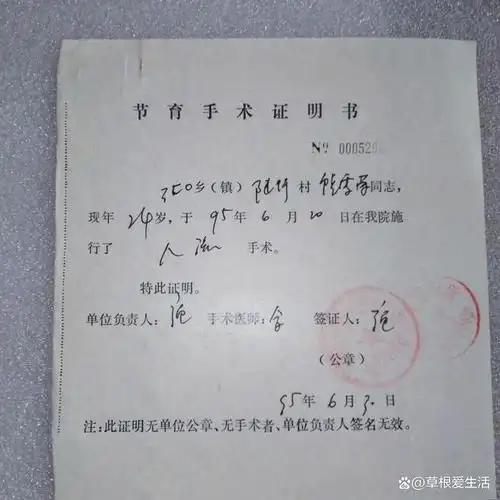 节育手术证明书
№ 00052
乡(镇) 村 同志,
现年24岁,于95年6月20日在我院施
行了人流手术。
特此证明。
单位负责人: 手术医师: 签证人:
(公章)
95年6月30日
注:此证明无单位公章、无手术者、单位负责人签名无效。
@草根爱生活